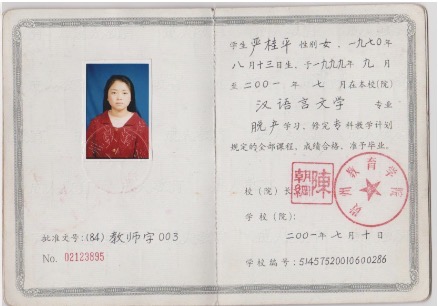 批准文号:(84)教师字003
No. 02123895
学生 严桂平 性别 女、一九七〇年
八月十三日生、于一九九九年九月
至二〇〇一年七月在本校(院)
汉语言文学 专业
脱产学习、修完专科教学计划
规定的全部课程、成绩合格、准予毕业。
校(院)长
陈朝纲
学校(院):
教育学院
二〇〇一年七月十日
学校编号:51457520010600286